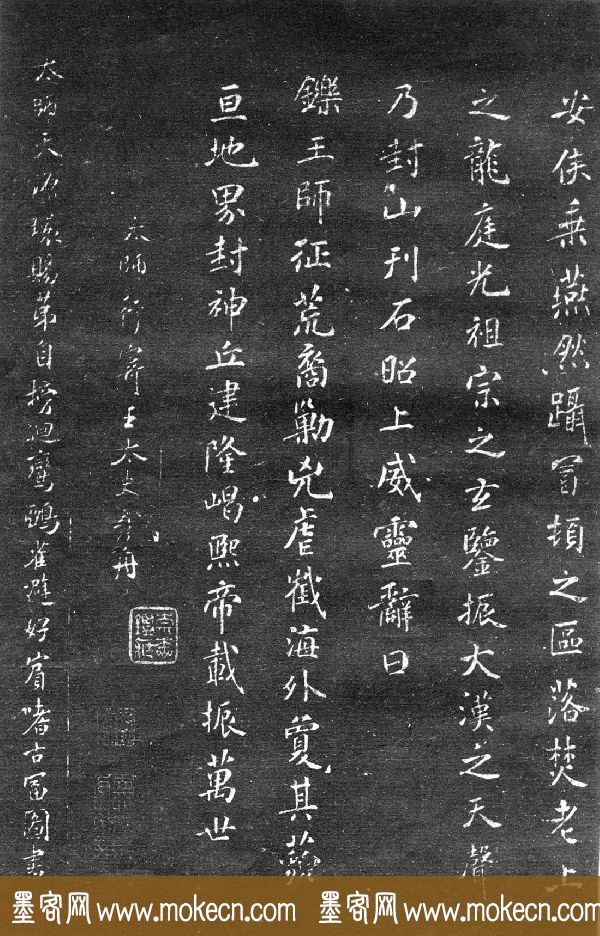 安侯乘燕然躡冒頓之區落焚老上
之龍庭光祖宗之玄鑒振大漢之天聲
乃封山刊石昭上威靈辭曰
鑠王師征荒裔勦兇虐截海外夐其藐
亘地界封神丘建隆嵑熙帝載振萬世
太師行寄王太史彥舟
太師天源環賜第自榜迴鸞雀避好賓嗜古富圖書
墨客网 www.mokecn.com 墨客网 www.mokecn.com